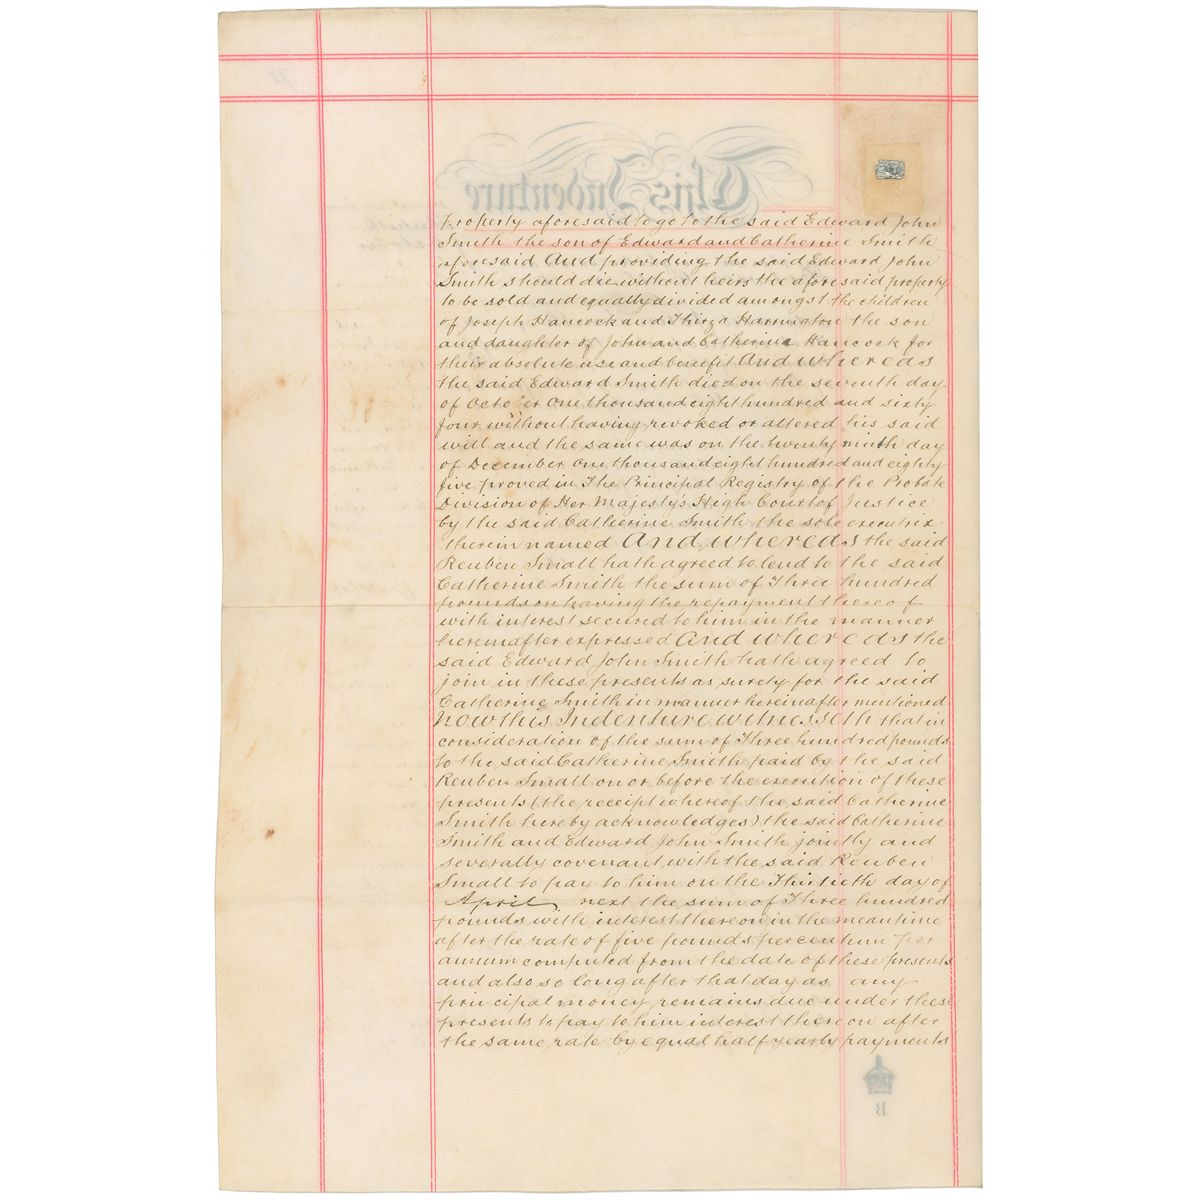 This Indenture
Property aforesaid to go to the said Edward John
Smith the son of Edward and Catherine Smith
aforesaid And providing the said Edward John
Smith should die without heirs the aforesaid property
to be sold and equally divided amongst the children
of Joseph Hancock and Thirza Harrington the son
and daughter of John and Catherine Hancock for
their absolute use and benefit And whereas
the said Edward Smith died on the seventh day
of October One thousand eight hundred and sixty
four without having revoked or altered his said
will and the same was on the twenty ninth day
of December One thousand eight hundred and eighty
five proved in The Principal Registry of the Probate
Division of Her Majesty's High Court of Justice
by the said Catherine Smith the sole executrix
therein named And whereas the said
Reuben Small hath agreed to lend to the said
Catherine Smith the sum of Three hundred
pounds on having the repayment thereof
with interest secured to him in the manner
hereinafter expressed And whereas the
said Edward John Smith hath agreed to
join in these presents as surety for the said
Catherine Smith in manner hereinafter mentioned
Now this Indenture witnesseth that in
consideration of the sum of Three hundred pounds
to the said Catherine Smith paid by the said
Reuben Small on or before the execution of these
presents (the receipt whereof the said Catherine
Smith hereby acknowledges) the said Catherine
Smith and Edward John Smith jointly and
severally covenant with the said Reuben
Small to pay to him on the Thirtieth day of
April next the sum of Three hundred
pounds with interest thereon in the meantime
after the rate of five pounds per centum per
annum computed from the date of these presents
and also so long after that day as any
principal money remains due under these
presents to pay to him interest thereon after
the same rate by equal half yearly payments
B